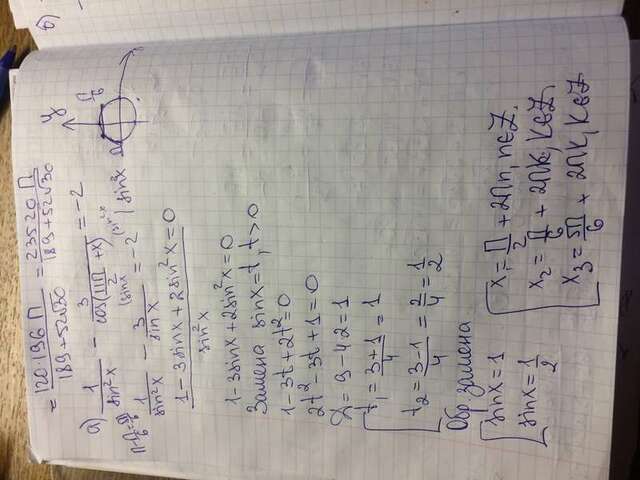 = 120·196 П / (189+52√30) = 23520 П / (189+52√30)
а) 1/sin²x - 3/cos(11П/2 + x) = -2
y
б)
П/6
П - П/6 = 5П/6
1/sin²x - 3/sin x = -2 | sin²x
(sinx
(sin²x
(1 - 3sinx + 2sin²x)/sin²x = 0
1 - 3sinx + 2sin²x = 0
Замена sinx = t, t > 0
1 - 3t + 2t² = 0
2t² - 3t + 1 = 0
Д = 9 - 4·2 = 1
t₁ = (3+1)/4 = 1
t₂ = (3-1)/4 = 2/4 = 1/2
Обр. замена
sinx = 1
sinx = 1/2
x₁ = П/2 + 2Пn, n∈Z.
x₂ = П/6 + 2Пk, k∈Z
x₃ = 5П/6 + 2Пk, k∈Z